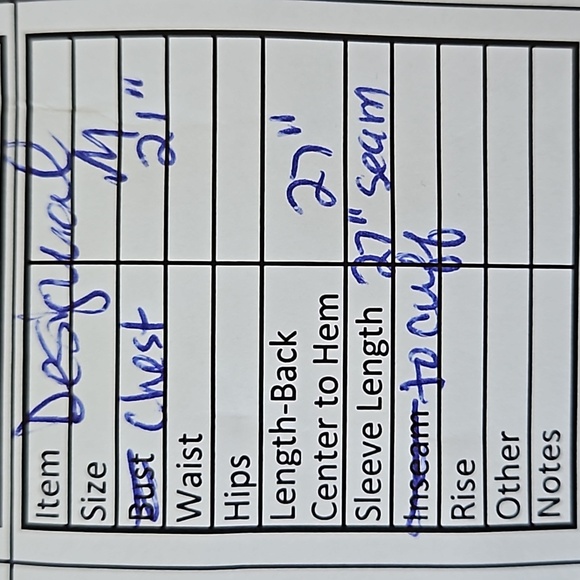 Item Desigual
Size M
Bust Chest 21"
Waist
Hips
Length-Back
Center to Hem 27"
Sleeve Length 27" seam
Inseam to cuff
Rise
Other
Notes